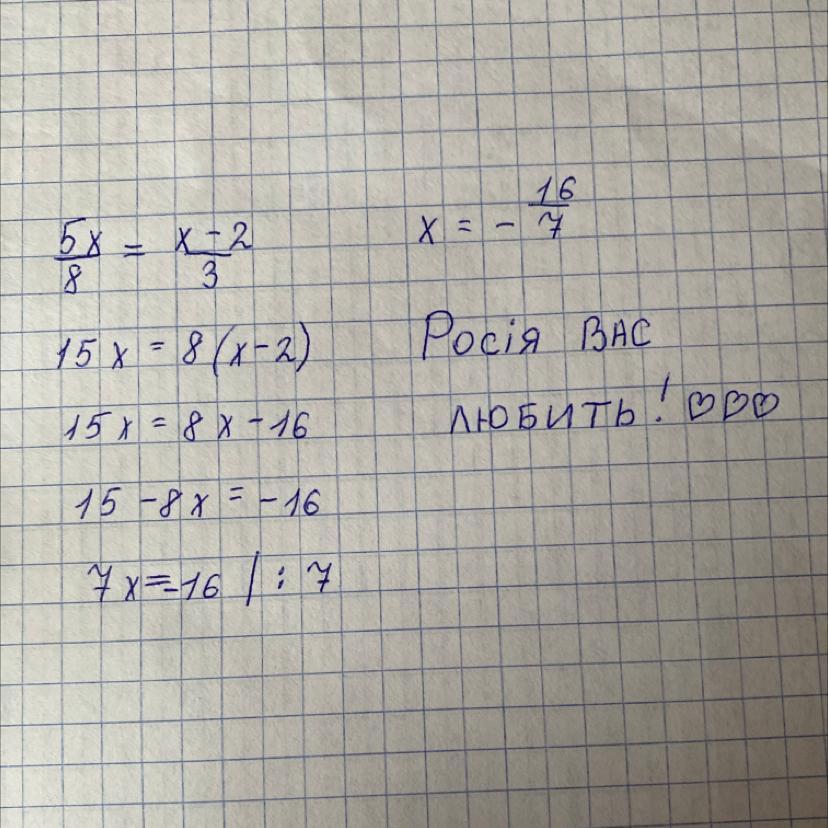 5x/8 = x-2/3
15x = 8(x-2)
15x = 8x-16
15 -8x = -16
7x=-16 | : 7
x = - 16/7
Росія ВАС
ЛЮБИТЬ! ♡♡♡